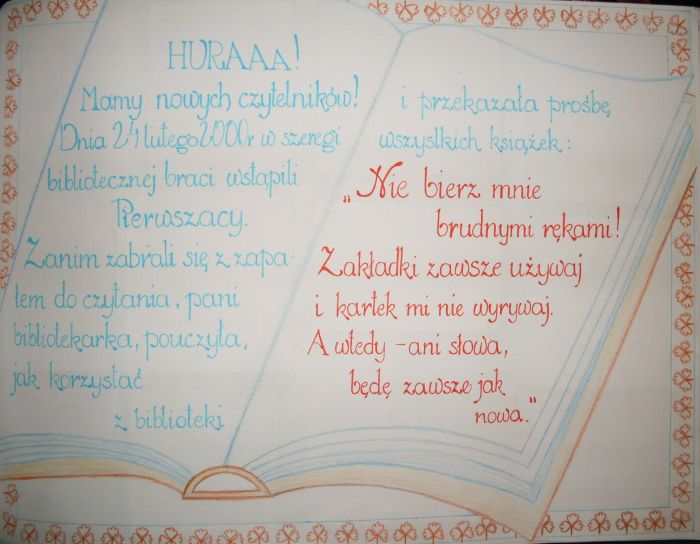 HURAAA!
Mamy nowych czytelników!
Dnia 24 lutego 2000r w szeregi
bibliotecznej braci wstąpili
Pierwszacy.
Zanim zabrali się z zapa-
łem do czytania, pani
bibliotekarka, pouczyła,
jak korzystać
z biblioteki
i przekazała prośbę
wszystkich książek:
„Nie bierz mnie
brudnymi rękami!
Zakładki zawsze używaj
i kartek mi nie wyrywaj.
A wtedy - ani słowa,
będę zawsze jak
nowa."